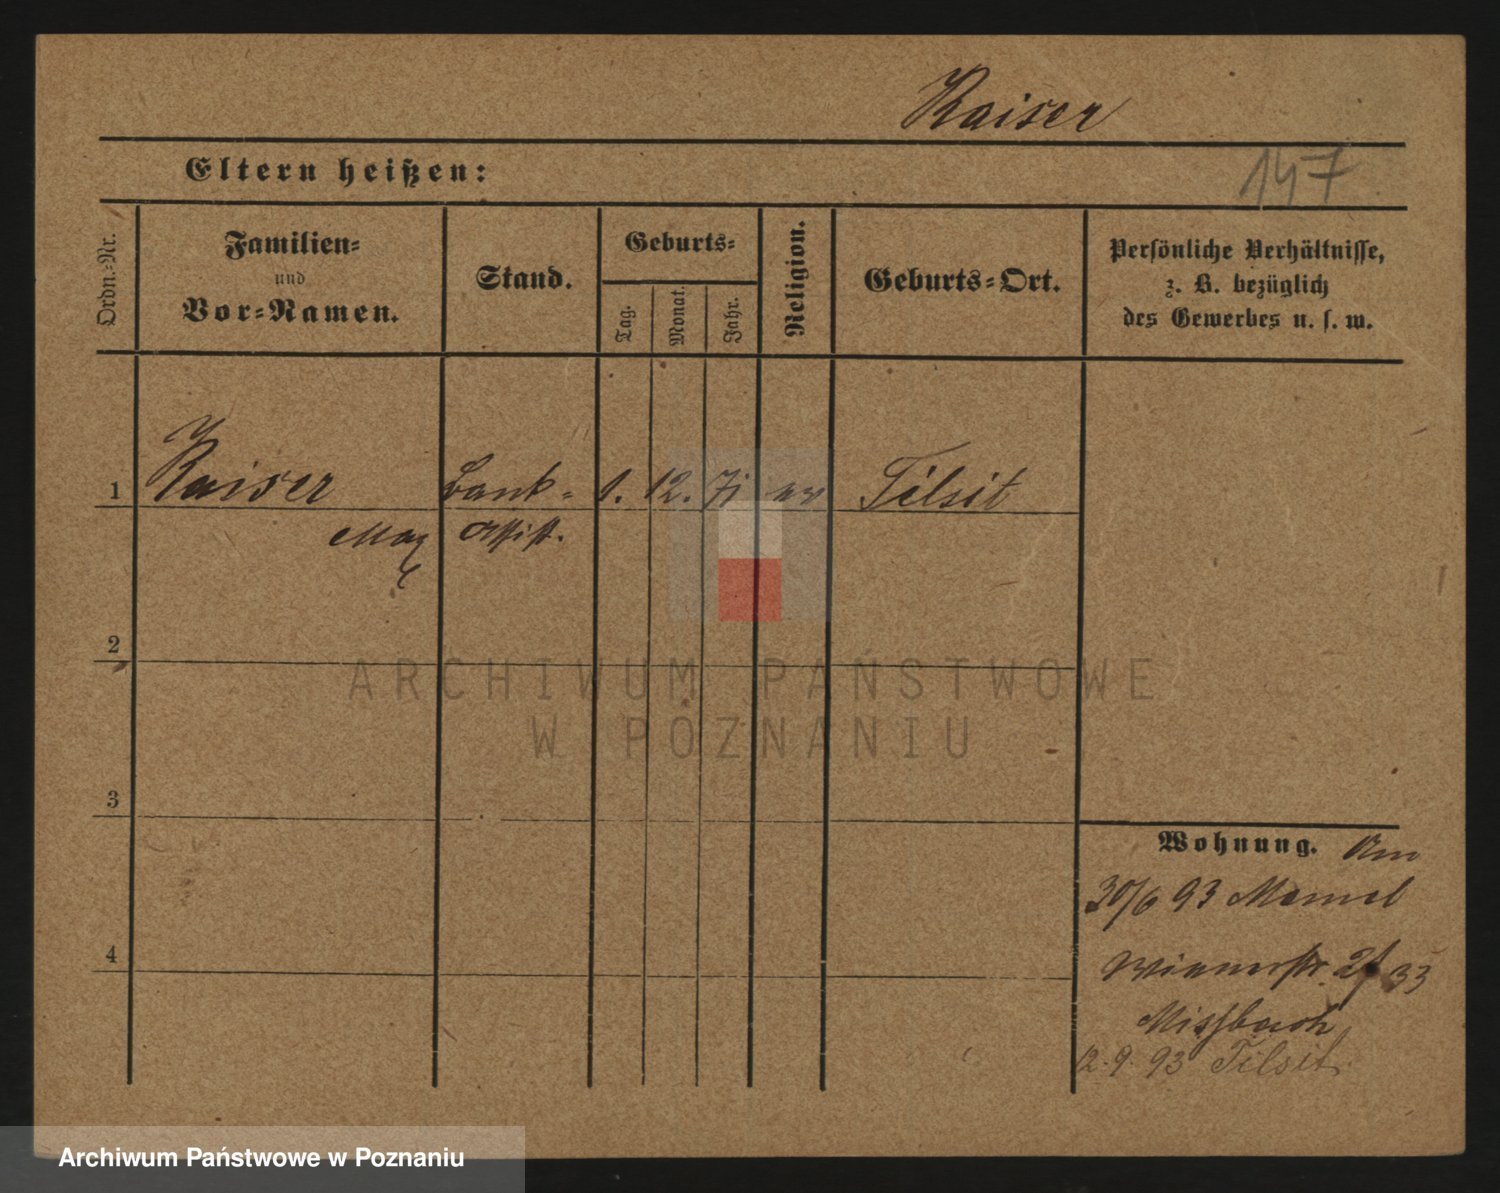 Kaiser
Eltern heißen:
147
Ordn.-Nr.
Familien-
und
Vor-Namen.
Stand.
Geburts-
Tag.
Monat.
Jahr.
Religion.
Geburts-Ort.
Persönliche Verhältnisse,
z. B. bezüglich
des Gewerbes u. s. w.
1 Kaiser Bank- 1. 12. 71 ev Tilsit
Max Assist.
2
ARCHIWUM PAŃSTWOWE
W POZNANIU
3
Wohnung.
30/6 93 Memel
4
Wienerstr.
Missbach
12.9.93 Tilsit.
Archiwum Państwowe w Poznaniu